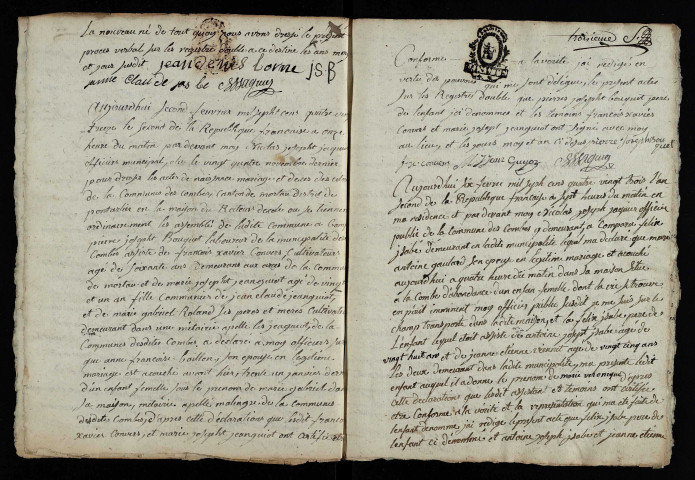 La nouveau né de tout quoy nous avons dressé le présent
proces verbal sur les registre double a ce destiné les ans mois
et jour susdit jean denis Lorne JSB
jsabe SJaquin
Aujourdhuy second fevrier mil sept cens quatre vin
treze le second de la Republique francaise a onze
heure du matin par devant moy Nicolas joseph jaquin
officier municipal, élu le vingt quatre novembre dernier
pour dresser les actes de naissance mariage et deces des citoi
de la Commune des Combes Canton de morteau district de
pontarlier en la maison du Recteur decole ou se tiennent
ordinairement les assemblés de ladite commune a Comp
pierre joseph Bouquet laboureur de la municipalité des
Combes assisté de francois xavier Convers Cultivateur
agé de soixante ans demeurant aux arces de la Commune
de morteau et de marie josepht jeanguiot agé de vingt
et un an fille Communier de jean claude jeanguiot
et de marie gabriel Roland ses peres et meres Cultivateur
demeurant dans une métairie apellé les jeanguiot de la
Commune desdites Combes a déclaré a moy officier, sus
que anne francoise Cuillon, son épouse en legitime
mariage est acouché avant hier trente un janvier dernier
d'un enfant femelle sous le prenom de marie gabriel dans
sa maison, métairie apellé malinges de la communes
desdites Combes d'apres cette déclarations que ledit francois
xavier Convers et marie josepht jeanguiot ont certifié
troisieme
Conforme a la verité jai redigé en
vertu des pouvoirs qui me sont délégué, le présent acte
sur les Registre double que pierre joseph bouquet pere
de l'enfant ici denommés et les temoins francois xavier
Convers et marie josept jeanguiot ont signés avec moy
au lieux et jours moy et an ci dessus pierre joseph bouquet
SJaquin
Aujourdhuy six fevrié mil sept cens quatre vingt trois l'an
second de la Republique francaise a sept heures du matin en
ma residence et par devant moy Nicolas joseph jaquin offici
publié de la Commune des Combes y demeurant a Comparu felix
jsabé demeurant en ladite municipalité lequel ma déclaré que marie
antoine gaulard son epouse en legitime mariage est acouché
aujourdhuy a quatre heures du matin dans sa maison située
a la Combe d'abondance d'un enfan femelle dont la vie s'i trouve
en parit imanment moy officier public susdit je me suis sur le
champ transporté dans ladite maison et la felix jsabe pere de
L'enfant lequel était assisté de antoine joseph jsabe agé de
vingt huit ans et du jeanne etienne vienot agé de vingt cinq ans
les deux demeurant dans ladite municipalité, ma presenté ledit
enfant auquel il a donné le prenom de marie veronique d'apres
cette déclaration que ledit assistant et temoins ont certifiée
etre Conforme a la verité et la representation qui ma été faite de
l'enfant denommé, jai redigé le présent acte que felix jsabe pere de
l'enfant ci dénommé et antoine joseph jsabe et jeanne etienne